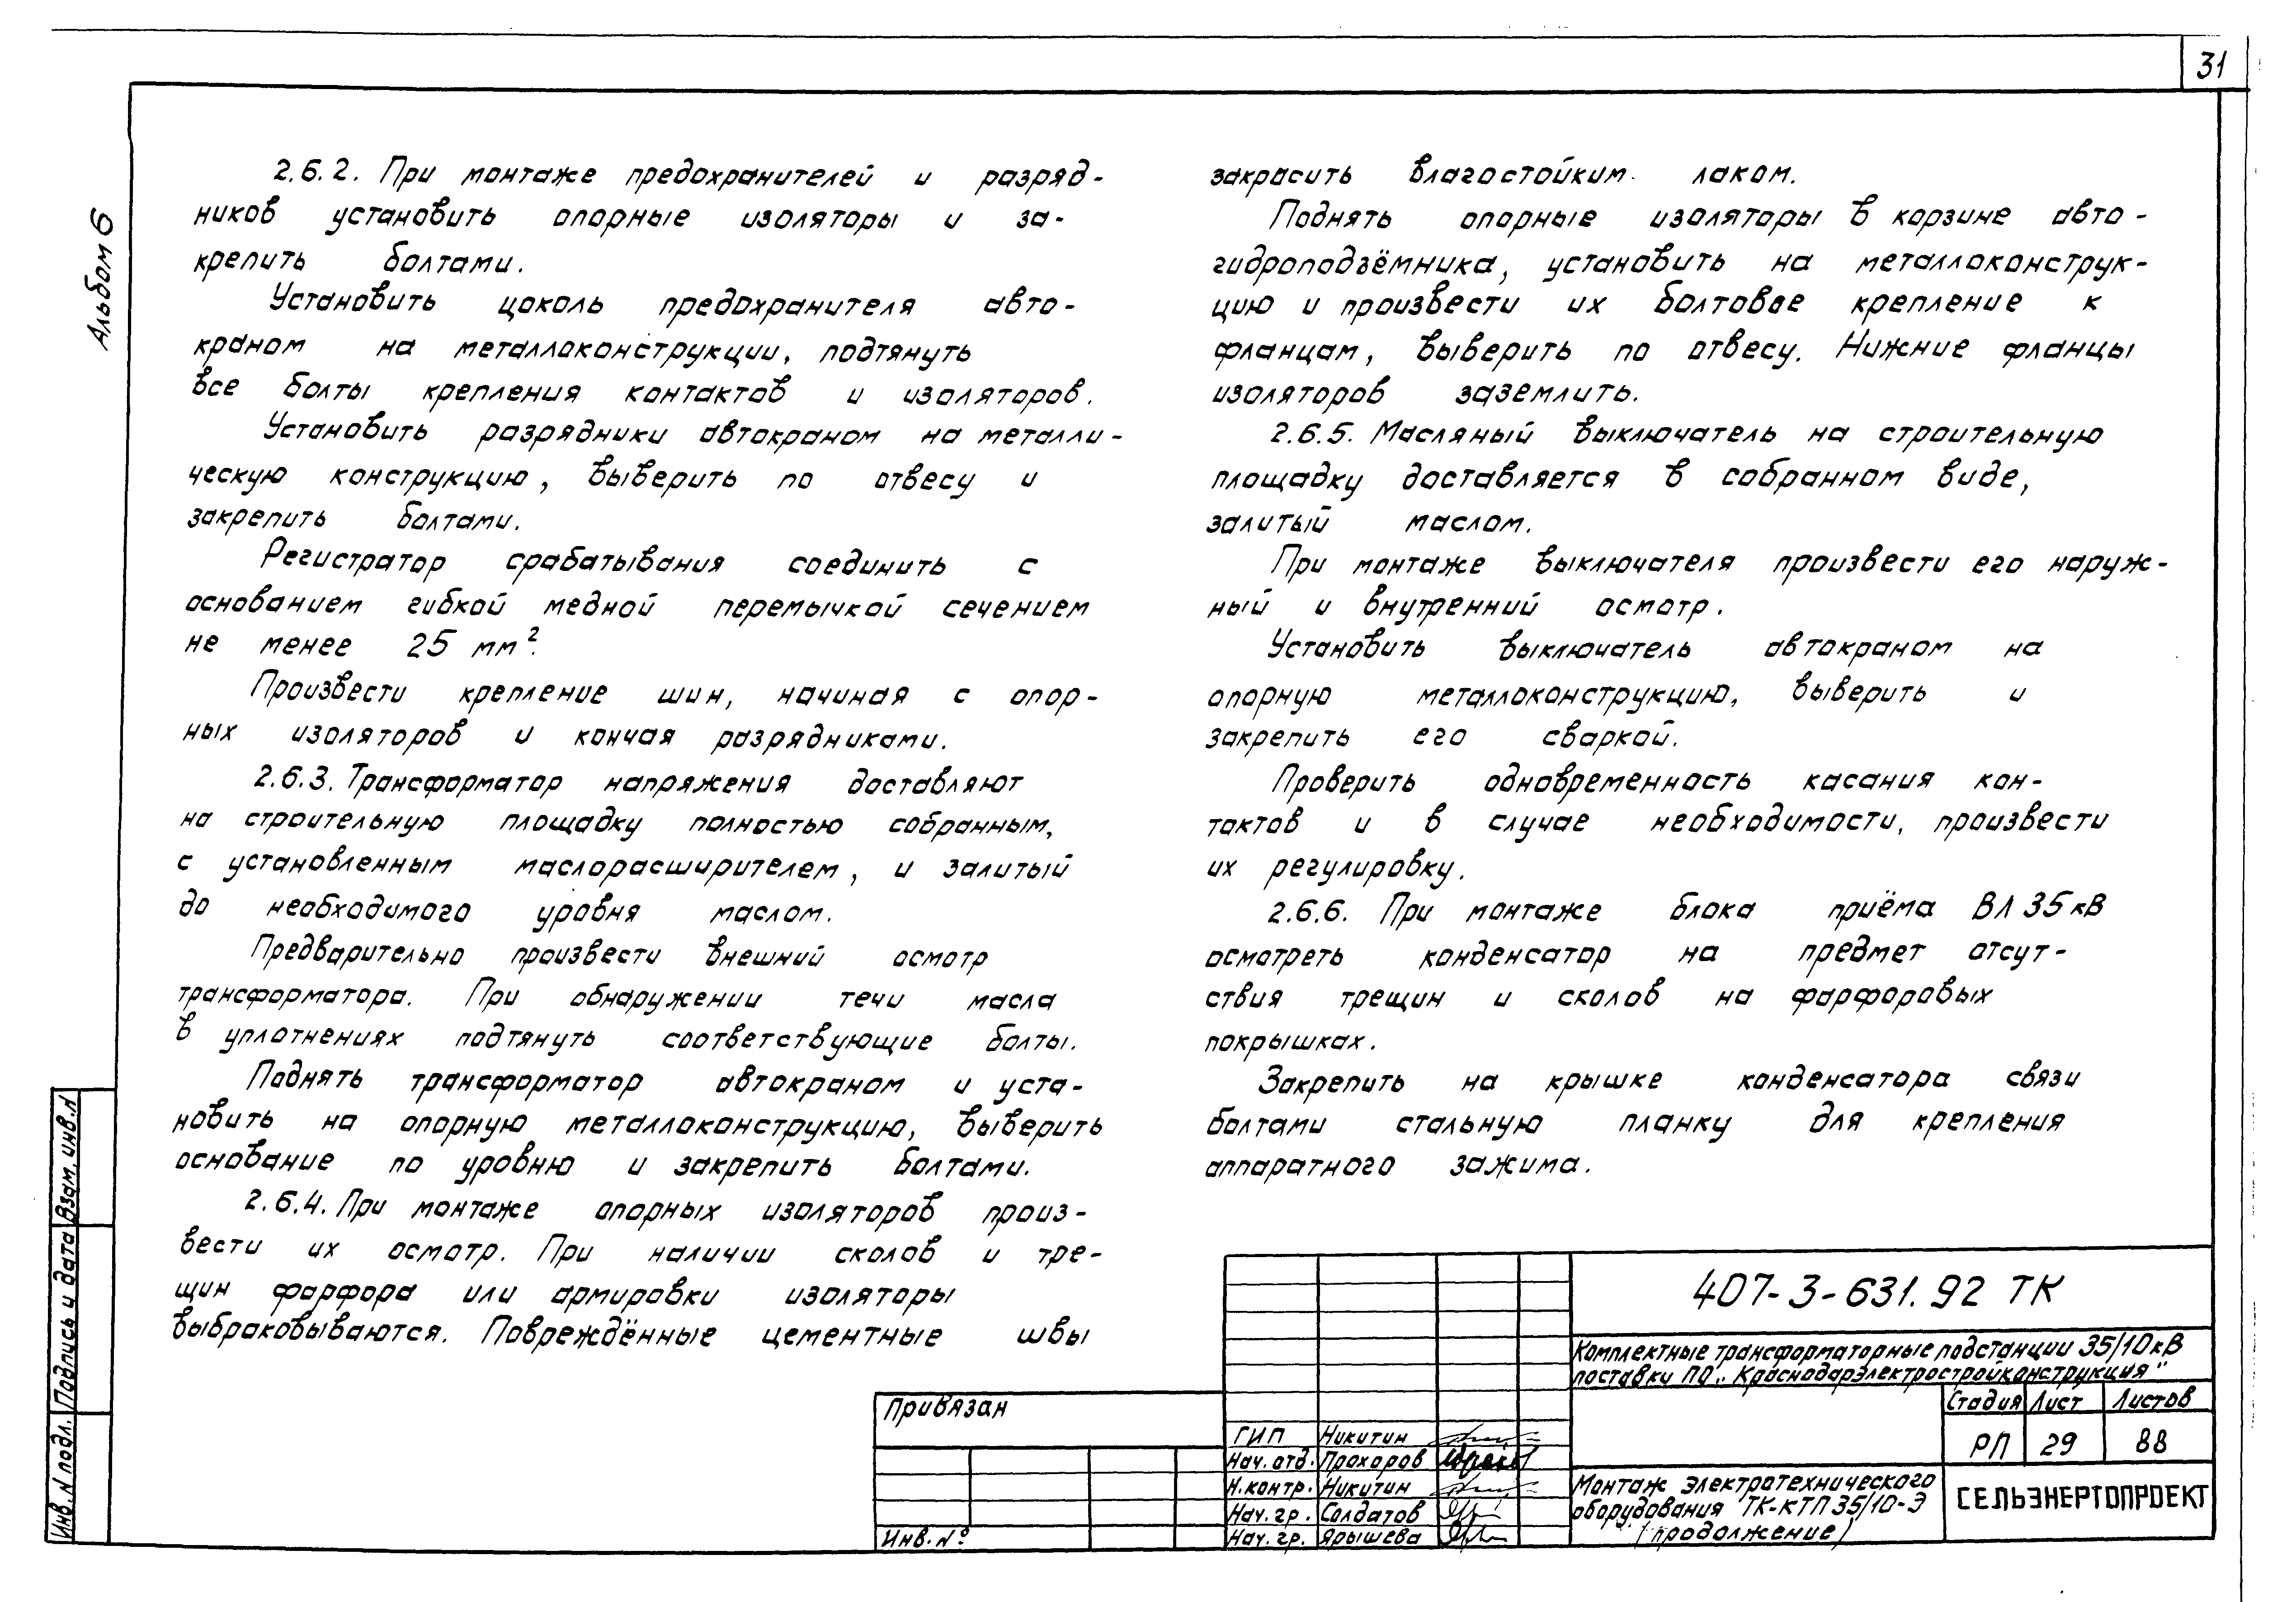 31
Альбом 6
2.6.2. При монтаже предохранителей и разряд-
ников установить опорные изоляторы и за-
крепить болтами.
Установить цоколь предохранителя авто-
краном на металлоконструкции, подтянуть
все болты крепления контактов и изоляторов.
Установить разрядники автокраном на металли-
ческую конструкцию, выверить по отвесу и
закрепить болтами.
Регистратор срабатывания соединить с
основанием гибкой медной перемычкой сечением
не менее 25 мм².
Произвести крепление шин, начиная с опор-
ных изоляторов и кончая разрядниками.
2.6.3. Трансформатор напряжения доставляют
на строительную площадку полностью собранным,
с установленным маслорасширителем, и залитый
до необходимого уровня маслом.
Предварительно произвести внешний осмотр
трансформатора. При обнаружении течи масла
в уплотнениях подтянуть соответствующие болты.
Поднять трансформатор автокраном и уста-
новить на опорную металлоконструкцию, выверить
основание по уровню и закрепить болтами.
2.6.4. При монтаже опорных изоляторов произ-
вести их осмотр. При наличии сколов и тре-
щин фарфора или армировки изоляторы
выбраковываются. Повреждённые цементные швы
закрасить влагостойким лаком.
Поднять опорные изоляторы в корзине авто-
гидроподъёмника, установить на металлоконструк-
цию и произвести их болтовое крепление к
фланцам, выверить по отвесу. Нижние фланцы
изоляторов заземлить.
2.6.5. Масляный выключатель на строительную
площадку доставляется в собранном виде,
залитый маслом.
При монтаже выключателя произвести его наруж-
ный и внутренний осмотр.
Установить выключатель автокраном на
опорную металлоконструкцию, выверить и
закрепить его сваркой.
Проверить одновременность касания кон-
тактов и в случае необходимости, произвести
их регулировку.
2.6.6. При монтаже блока приёма ВЛ 35 кВ
осмотреть конденсатор на предмет отсут-
ствия трещин и сколов на фарфоровых
покрышках.
Закрепить на крышке конденсатора связи
болтами стальную планку для крепления
аппаратного зажима.
Взам. инв. N
Подпись и дата
Инв. N подл.
Привязан
Инв. №
ГИП Никитин
Нач. отд. Прохоров
Н. контр. Никитин
Нач. гр. Солдатов
Нач. гр. Ярышева
407-3-631.92 ТК
Комплектные трансформаторные подстанции 35/10 кВ
поставки ПО „Краснодарэлектростройконструкция"
Стадия Лист Листов
РП 29 88
Монтаж электротехнического
оборудования ТК-КТП 35/10-Э
(продолжение)
СЕЛЬЭНЕРГОПРОЕКТ